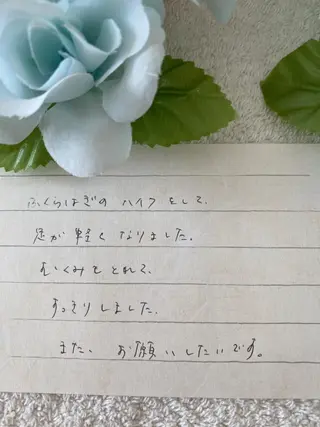 ふくらはぎの ハイフをして、
足が軽くなりました。
むくみもとれて、
すっきりしました。
また、お願いしたいです。